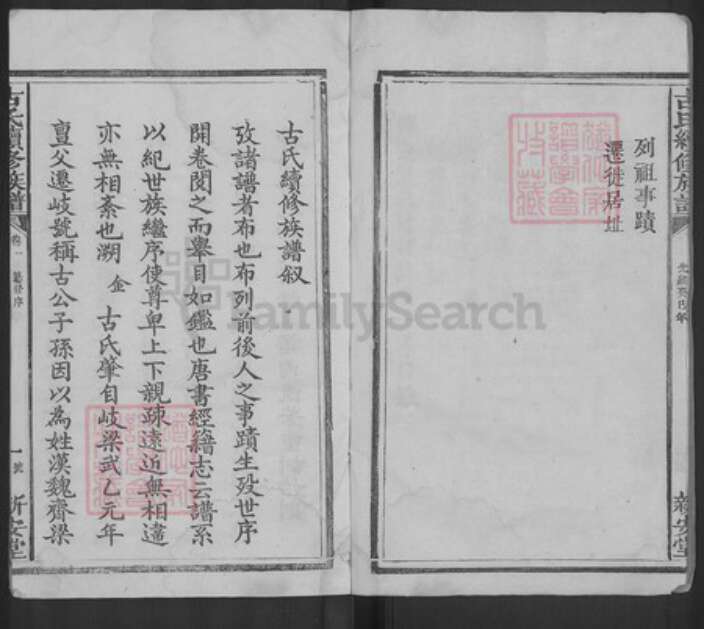 古氏續修族譜
光緒癸巳年
新安堂
列祖事蹟
遷徙居址
古氏續修族譜敘
攷諸譜者布也布列前後人之事蹟生歿世序
開卷閱之而舉目如鑑也唐書經籍志云譜系
以紀世族繼序使尊卑上下親疎遠近無相違
亦無相紊也溯 金 古氏肇自岐梁武乙元年
亶父遷岐號稱古公子孫因以為姓漢魏齊梁
古氏續修族譜
卷一
序
一號
新安堂
FamilySearch